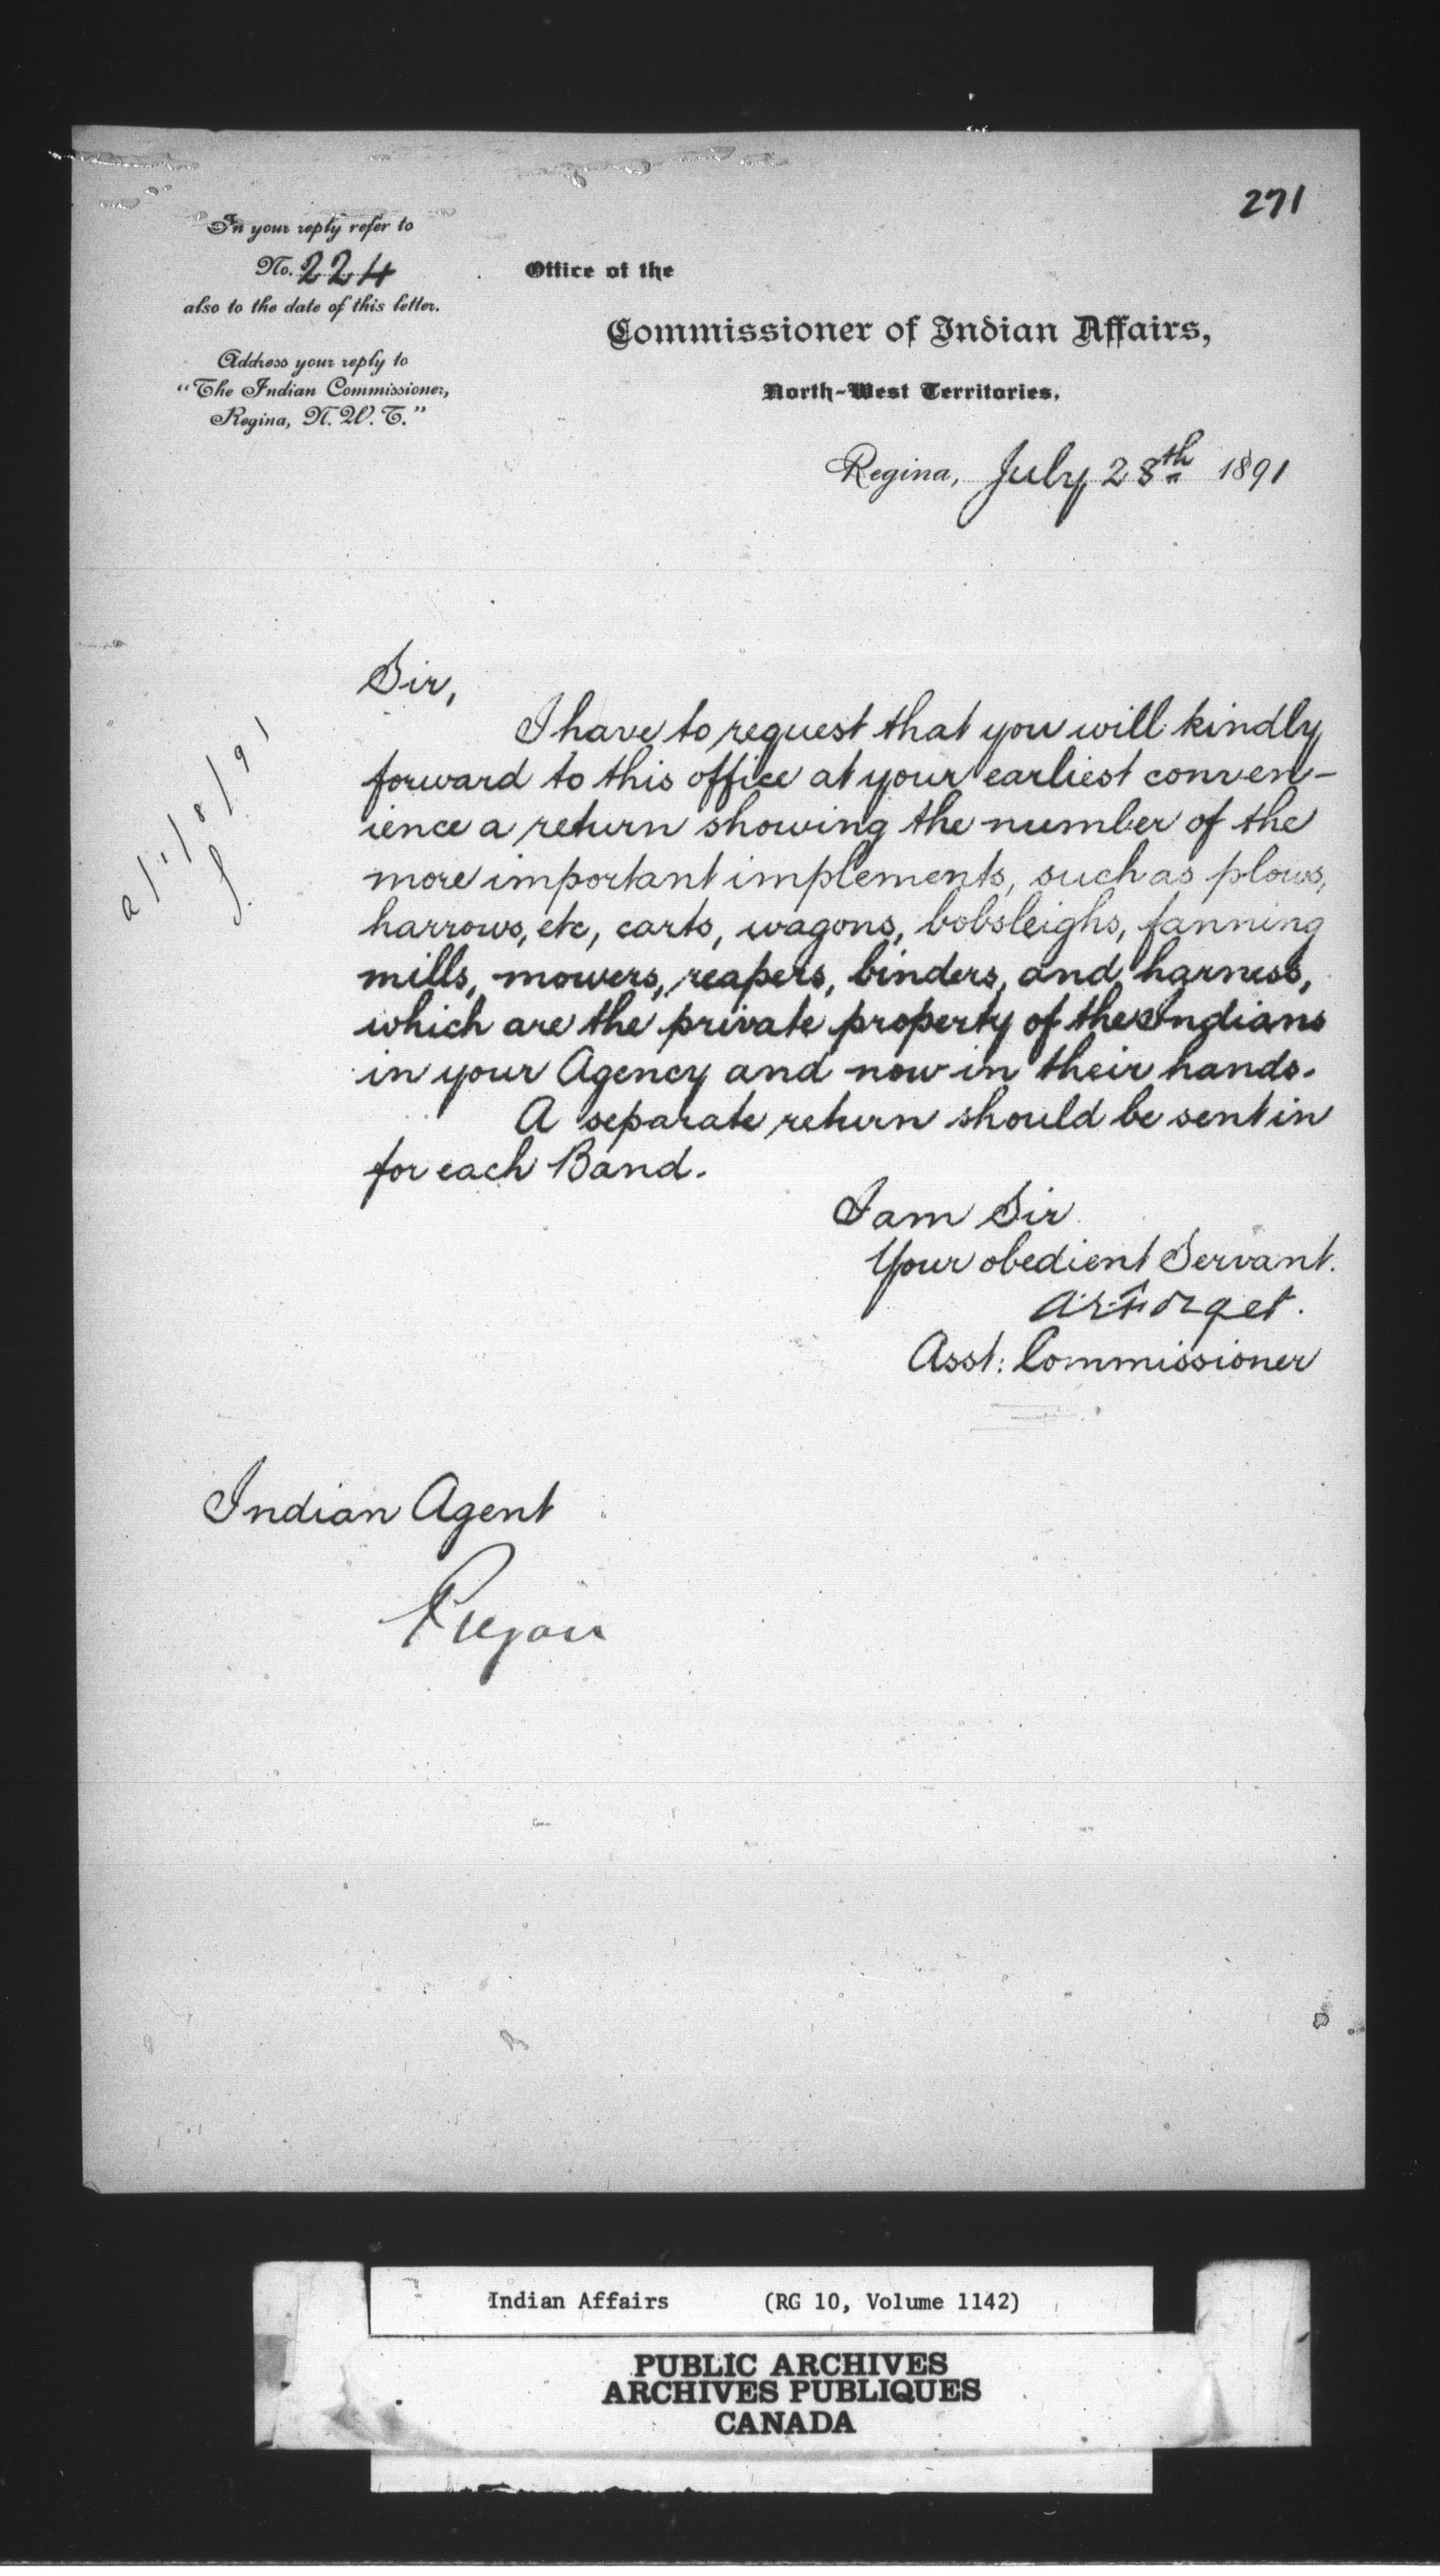 271
In your reply refer to
No. 224
also to the date of this letter.
Address your reply to
"The Indian Commissioner,
Regina, N. W. T."
Office of the
Commissioner of Indian Affairs,
North-West Territories.
Regina, July 28th 1891
Sir,
I have to request that you will kindly
forward to this office at your earliest conven-
ience a return showing the number of the
more important implements, such as plows,
harrows, etc, carts, wagons, bobsleighs, fanning
mills, mowers, reapers, binders, and harness,
which are the private property of the Indians
in your Agency and now in their hands.
A separate return should be sent in
for each Band.
I am Sir
Your obedient Servant.
A. E. Forget.
Asst: Commissioner
Indian Agent
Piegan
Indian Affairs (RG 10, Volume 1142)
PUBLIC ARCHIVES
ARCHIVES PUBLIQUES
CANADA